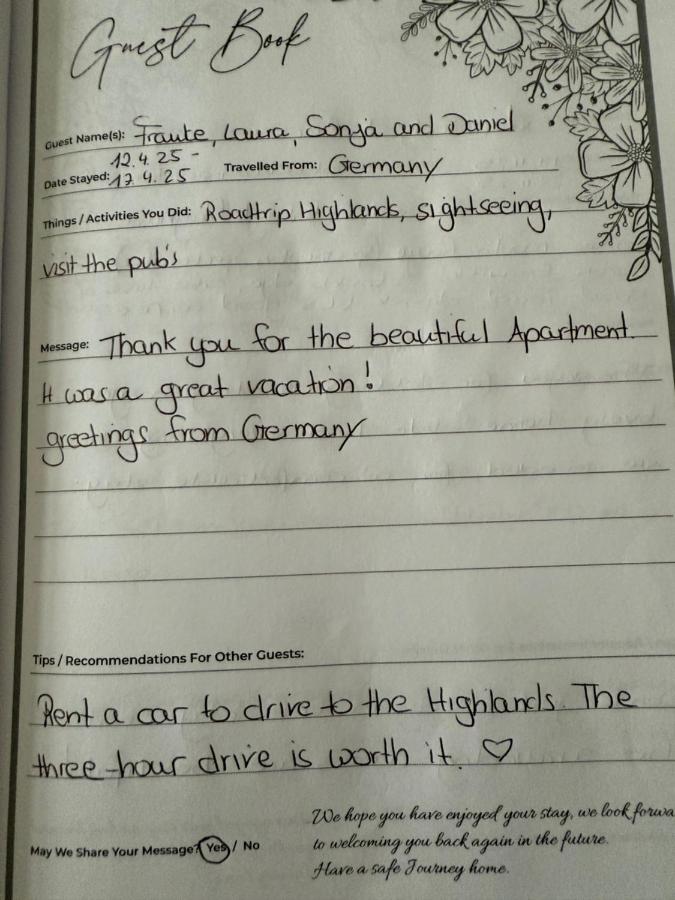 Guest Book
Guest Name(s): Traute, Laura, Sonja and Daniel
12.4.25 -
Date Stayed: 17.4.25 Travelled From: Germany
Things / Activities You Did: Roadtrip Highlands, sightseeing,
visit the pub's
Message: Thank you for the beautiful Apartment.
It was a great vacation!
greetings from Germany
Tips / Recommendations For Other Guests:
Rent a car to drive to the Highlands. The
three-hour drive is worth it. ♡
We hope you have enjoyed your stay, we look forwa
May We Share Your Message? Yes / No
to welcoming you back again in the future.
Have a safe Journey home.